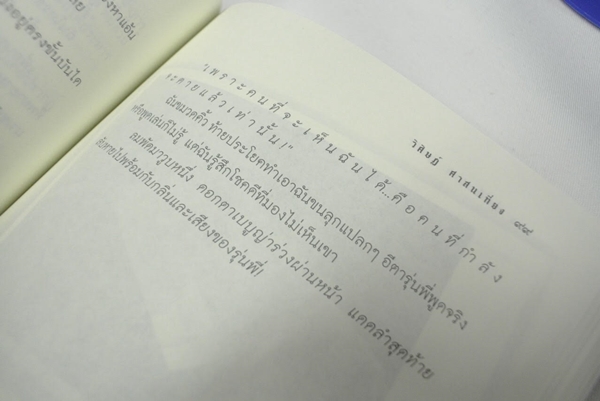 งหาแอ้น
ลย
งอยู่ตรงขั้นบันได
วิสิษฎ์ ศาสนเที่ยง ๔๙
"เพราะคนที่จะเห็นฉันได้...คือคนที่กำลัง
จะตายแล้วเท่านั้น!"
ฉันขมวดคิ้ว ท้ายประโยคทำเอาฉันขนลุกแปลกๆ อีตารุ่นพี่พูดจริง
หรือพูดเล่นก็ไม่รู้ แต่ฉันรู้สึกโชคดีที่มองไม่เห็นเขา
ลมพัดมาวูบหนึ่ง ดอกตาเบบูญ่าร่วงผ่านหน้า แดดลำสุดท้าย
ไปพร้อมกับกลิ่นและเสียงของรุ่นพี่!